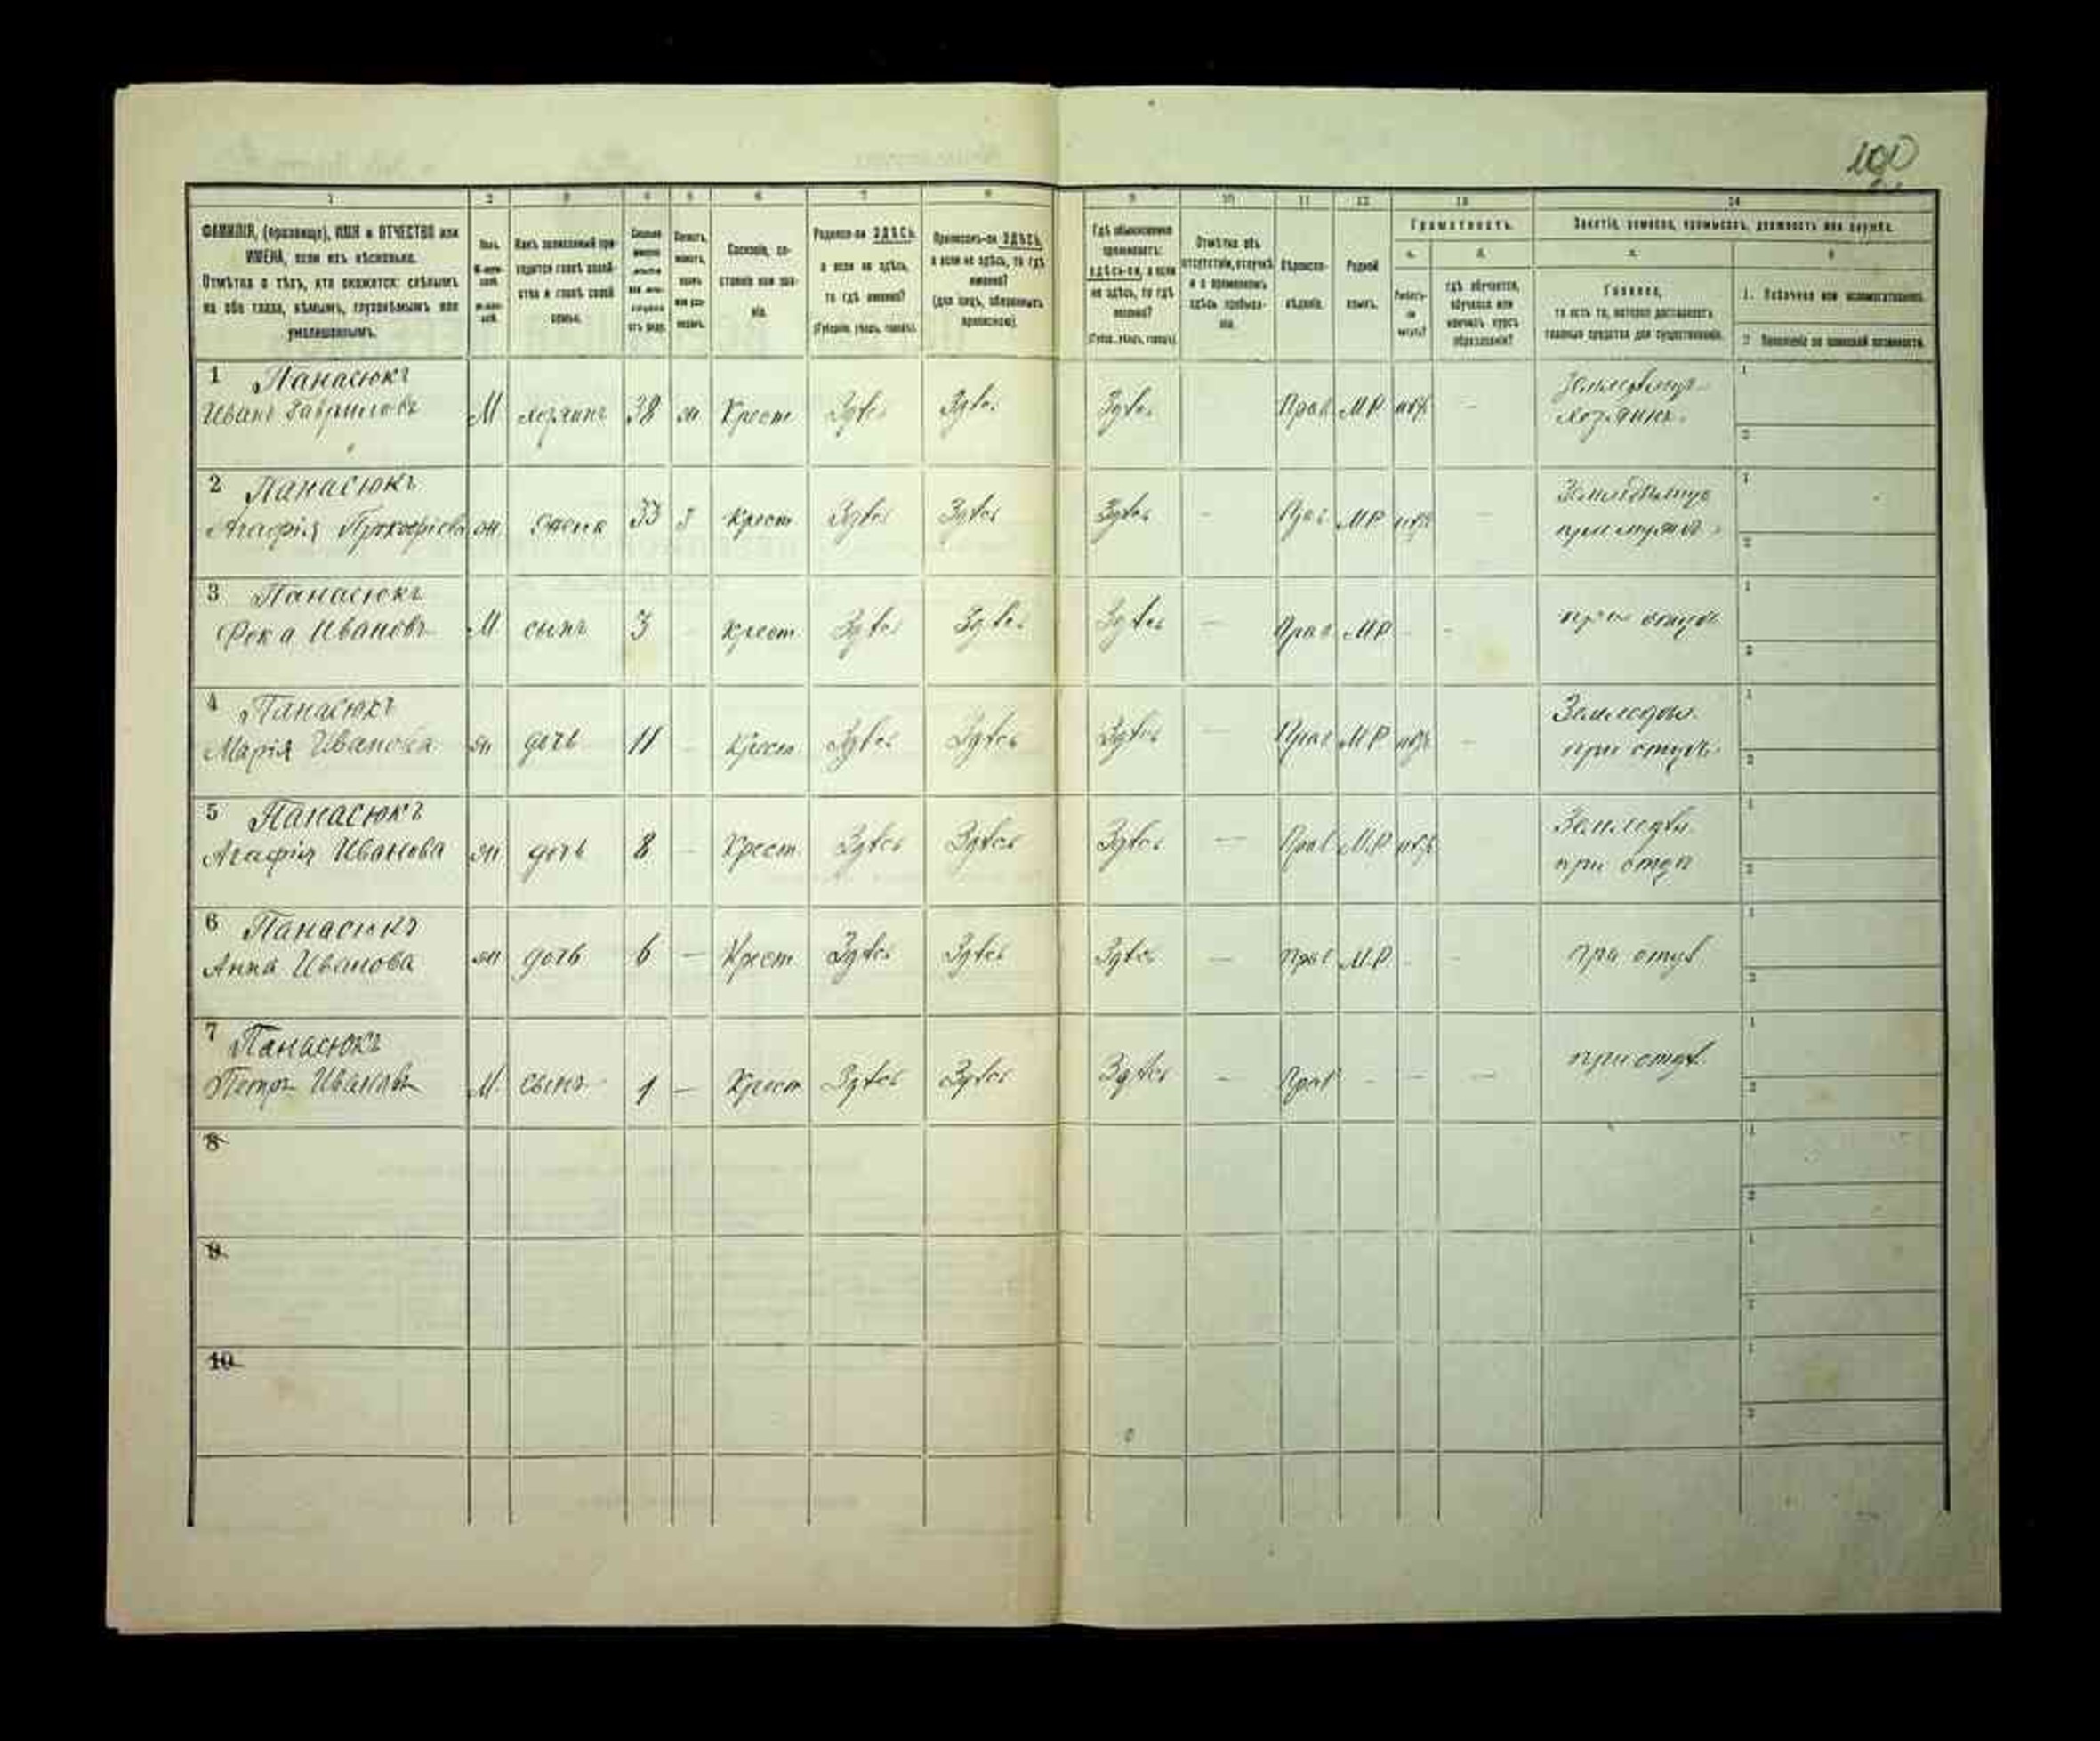 100
1 2 3 4 5 6 7 8 9 10 11 12 13 14
ФАМИЛІЯ, (прозвище), ИМЯ и ОТЧЕСТВО или
ИМЕНА, если ихъ нѣсколько.
Отмѣтка о тѣхъ, кто окажется: слѣпымъ
на оба глаза, нѣмымъ, глухонѣмымъ или
умалишеннымъ.
Полъ.
Какъ записанный при-
ходится главѣ хозяй-
ства и главѣ своей
семьи.
Сословіе, со-
стояніе или зва-
ніе.
Родился-ли ЗДѢСЬ,
а если не здѣсь,
то гдѣ именно?
(Губернія, уѣздъ, городъ).
Приписанъ-ли ЗДѢСЬ,
а если не здѣсь, то гдѣ
именно?
(для лицъ, обязанныхъ
припискою).
Гдѣ обыкновенно
проживаетъ:
здѣсь-ли, а если
не здѣсь, то гдѣ
именно?
(Губер., уѣздъ, городъ).
Отмѣтка объ
отсутствіи, отлучкѣ
и о временномъ
здѣсь пребыва-
ніи.
Вѣроиспо-
вѣданіе.
Родной
языкъ.
Грамотность.
а. б.
Умѣетъ-
ли
читать?
гдѣ обучается,
обучался или
кончилъ курсъ
образованія?
Занятіе, ремесло, промыселъ, должность или служба.
Главное,
то есть то, которое доставляетъ
главныя средства для существованія.
1. Побочное или вспомогательное.
2. Положеніе по воинской повинности.
1 Панасюкъ
Иванъ Гавриловъ М хозяинъ 38 ж Крест Здѣсь Здѣсь Здѣсь Прав М.Р нѣтъ — хозяинъ
2 Панасюкъ
Агафія Прокофіева ж жена 33 з Крест Здѣсь Здѣсь Здѣсь - Прав М.Р нѣтъ — при мужѣ
3 Панасюкъ
Фока Ивановъ М сынъ 3 - крест Здѣсь Здѣсь Здѣсь — Прав М.Р - - при отцѣ
4 Панасюкъ
Марія Иванова ж дочь 11 - Крест Здѣсь Здѣсь Здѣсь Прав М.Р нѣтъ — Земледѣл. при отцѣ
5 Панасюкъ
Агафія Иванова ж дочь 8 - Крест. Здѣсь Здѣсь Здѣсь — Прав М.Р нѣтъ — Земледѣл. при отцѣ
6 Панасюкъ
Анна Иванова ж дочь 6 — Крест Здѣсь Здѣсь Здѣсь — Прав М.Р. - - при отцѣ
7 Панасюкъ
Петръ Ивановъ М сынъ 1 — Крест Здѣсь Здѣсь Здѣсь - Прав - - — при отцѣ
8
9
10